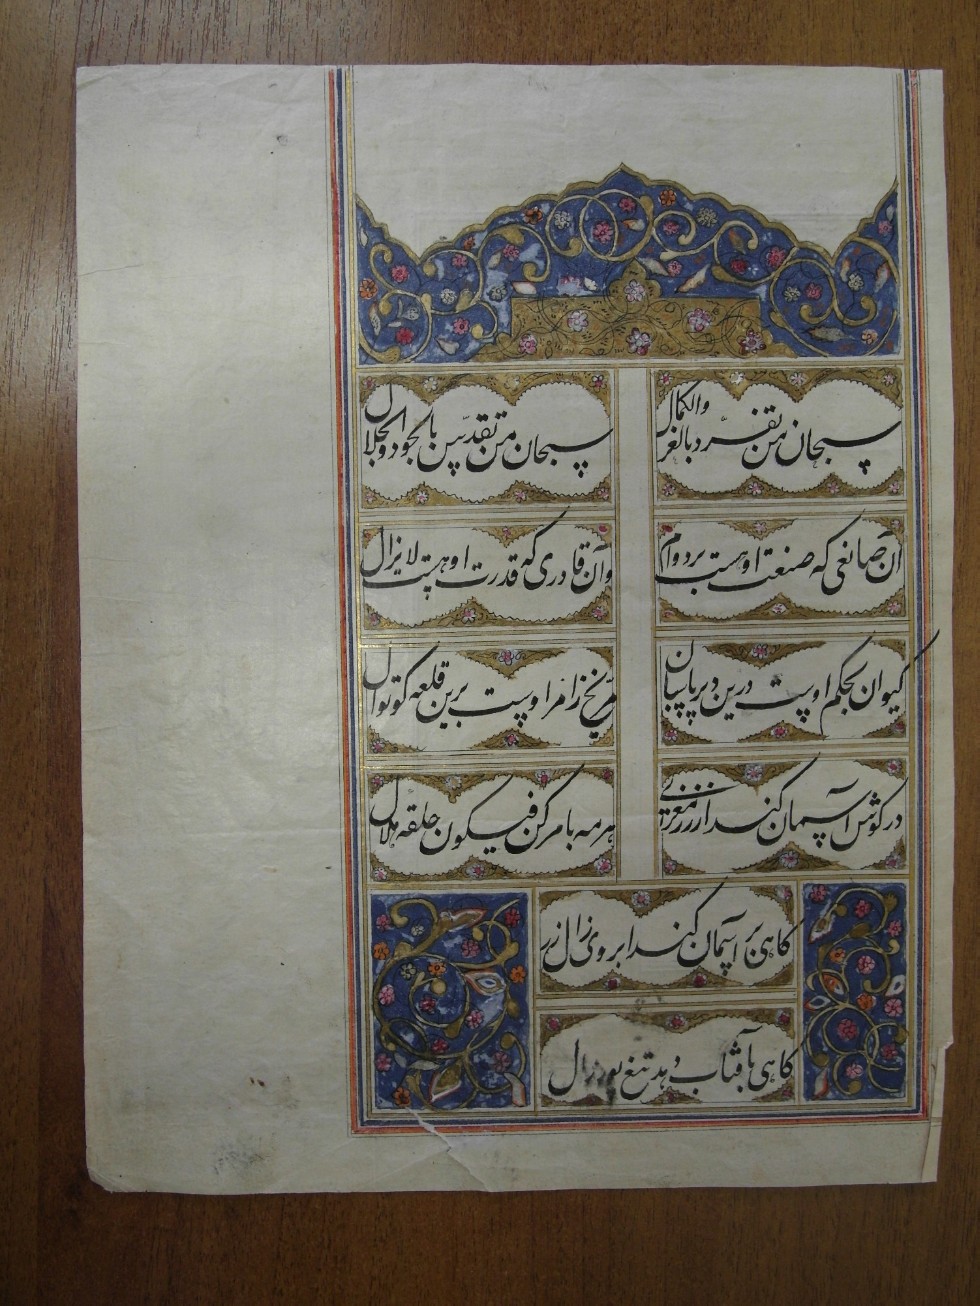 سبحان من تفرد بالعز والکمال
سبحان من تقدس بالجود والجلال
آن صانعی که صنعت اوهست بردوام
وآن قادری که قدرت اوهست لایزال
کیوان بحکم اوست درین دیر پاسبان
مریخ زامر اوست برین قلعه کوتوال
در کوش آسمان کند از زر مغربی
هر مه بامر کن فیکون حلقه هلال
کاهی بر آسمان کند ابروی زال زر
کاهی بآفتاب دهد تیغ پور زال